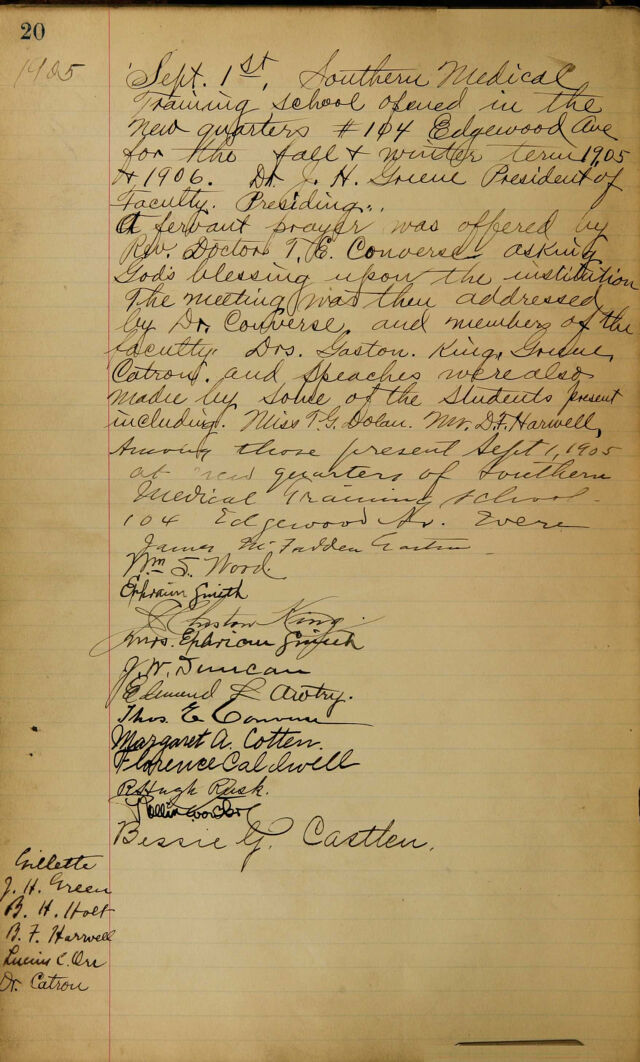 20
1905
Sept. 1st, Southern Medical
Training school opened in the
new quarters #104 Edgewood Ave
for the fall & winter term 1905
& 1906. Dr. J. H. Greene President of
Faculty. Presiding.
A fervant prayer was offered by
Rev. Doctor T. E. Converse asking
God's blessing upon the institution
The meeting was then addressed
by Dr. Converse, and members of the
faculty. Drs. Gaston. King, Greene,
Catron. and Speaches were also
made by some of the Students present
including. Miss T. G. Dolan. Mr. D. F. Harwell,
Among those present Sept 1, 1905
at new quarters of Southern
Medical Training School.
104 Edgewood Av. Were
James McFadden Gaston
Wm S. Wood.
Ephraim Smith
King
Mrs. Ephriam Smith
J. W. Duncan
Edmund L Awtry.
Thos. E Converse
Margaret A. Cotten.
Florence Caldwell
R. Hugh Rusk.
Bessie G. Castlen.
Gillette
J. H. Green
B. H. Holt
B. F. Harwell
Lucius C. Orr
Dr. Catron